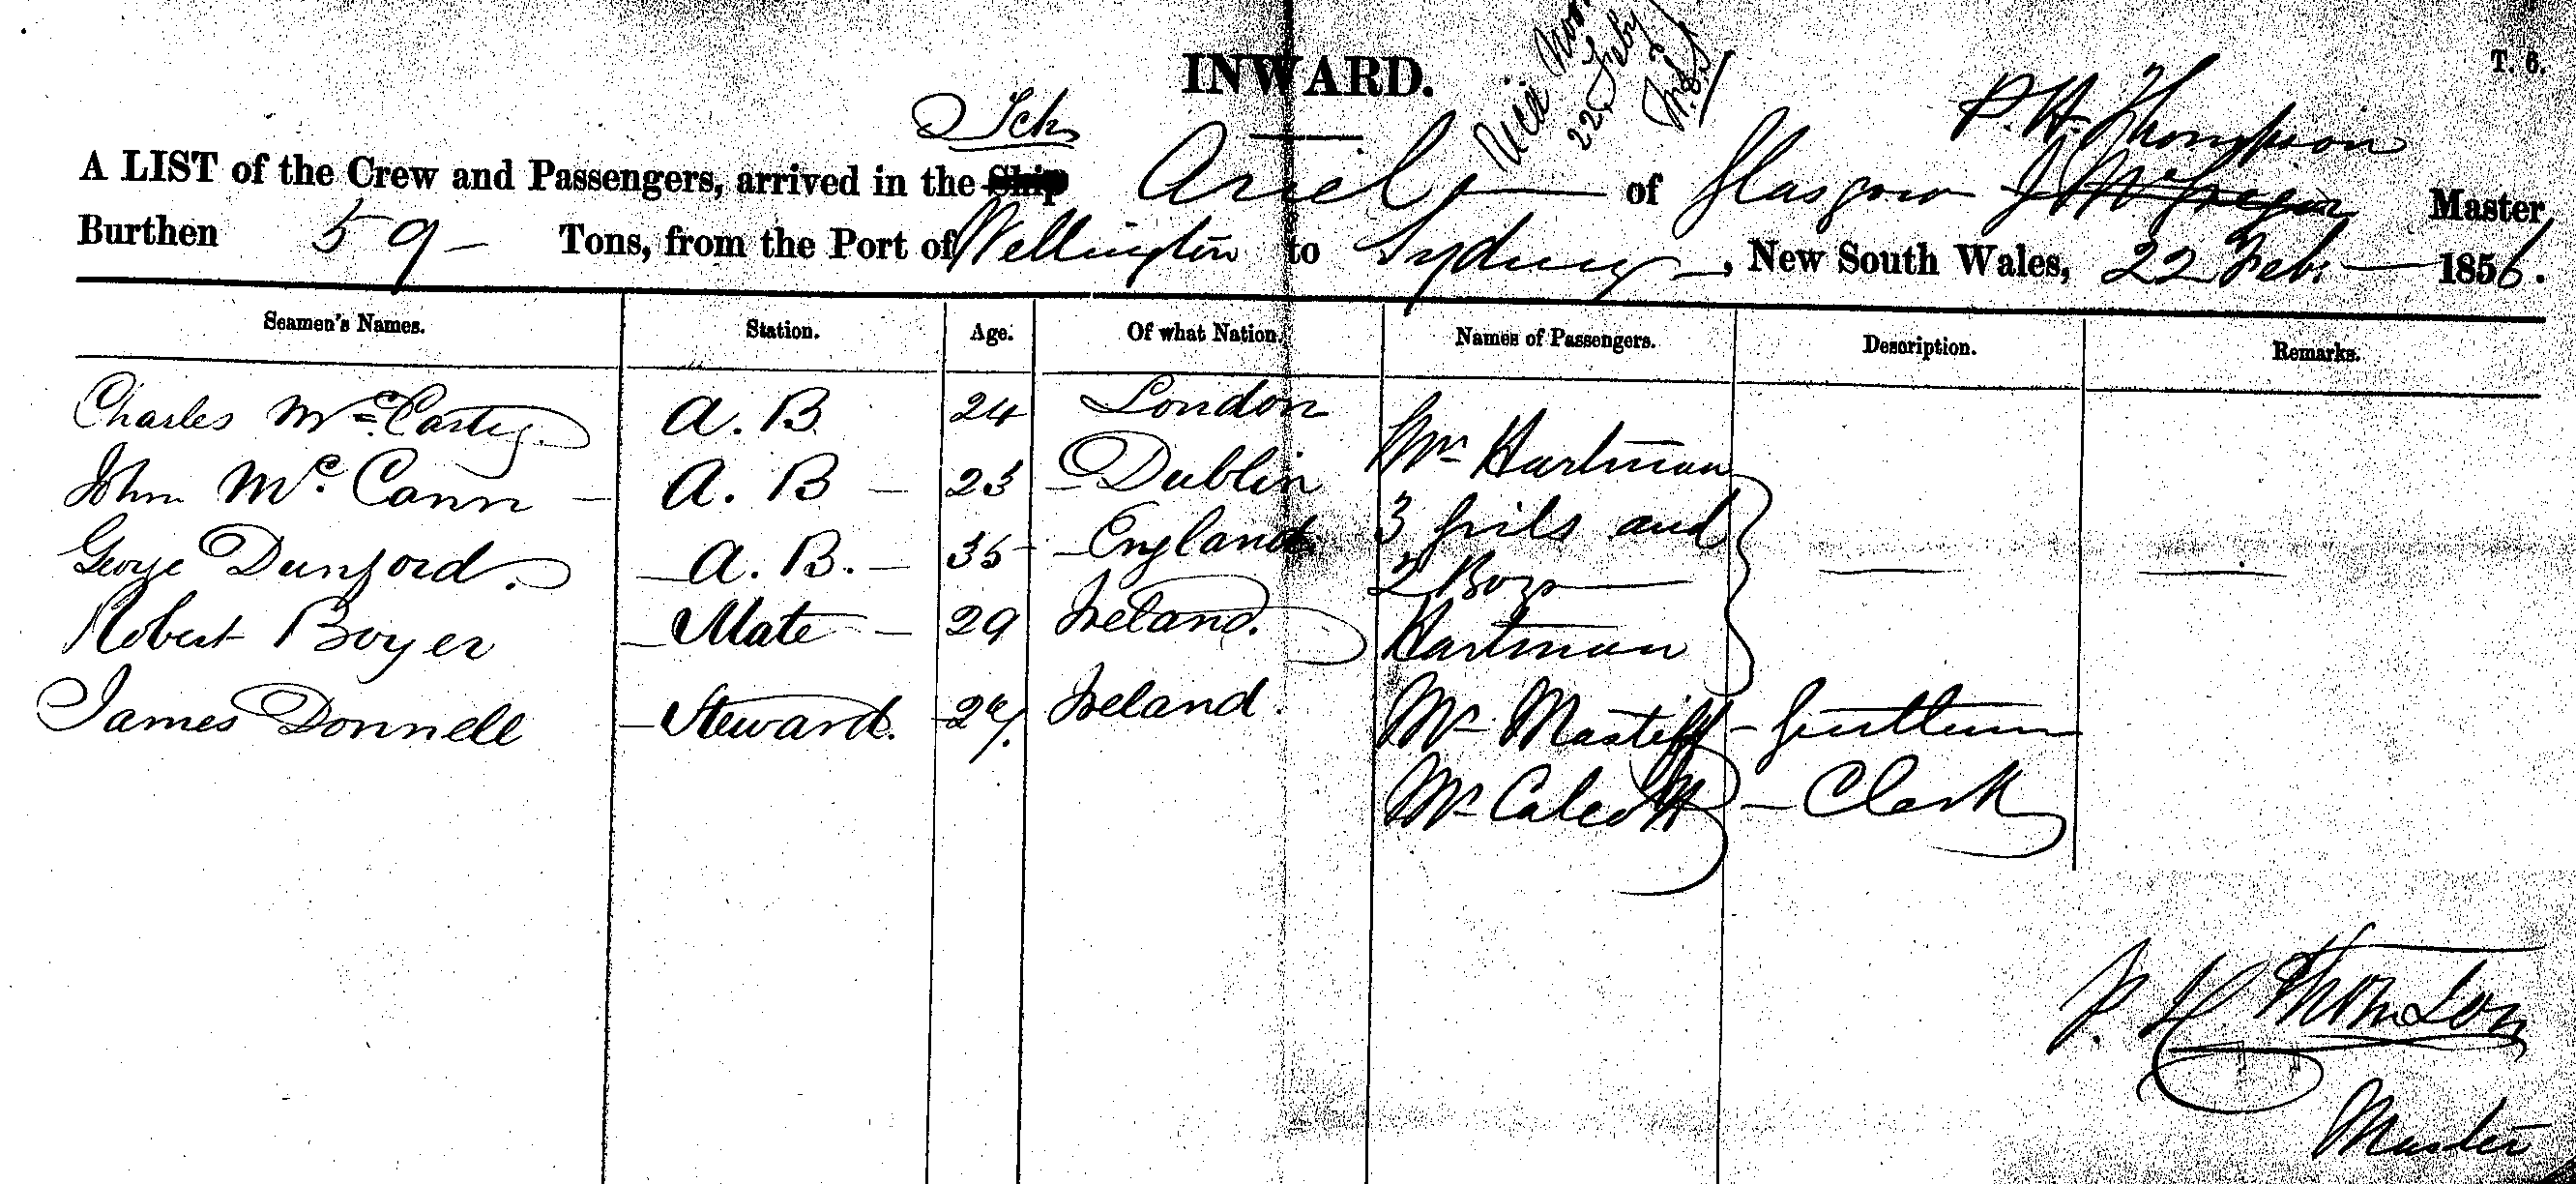 T. 6.
INWARD.
22 Feby
P. H. Thompson
Sch
A LIST of the Crew and Passengers, arrived in the Ship Ariel of Glasgow J McGregor Master,
Burthen 59 Tons, from the Port of Wellington to Sydney, New South Wales, 22 Feb. 1856.
Seamen's Names. Station. Age. Of what Nation. Names of Passengers. Description. Remarks.
Charles McCarty A. B 24 London
Mrs Hartman
John McCann A. B 23 Dublin
3 girls and
George Dunford. A. B. 35 England
2 Boys
Robert Boyer Mate 29 Ireland.
Hartman
James Donnell Steward. 27. Ireland.
Mr Mastiff Gentleman
Mr Clark
P H Thomson
Master